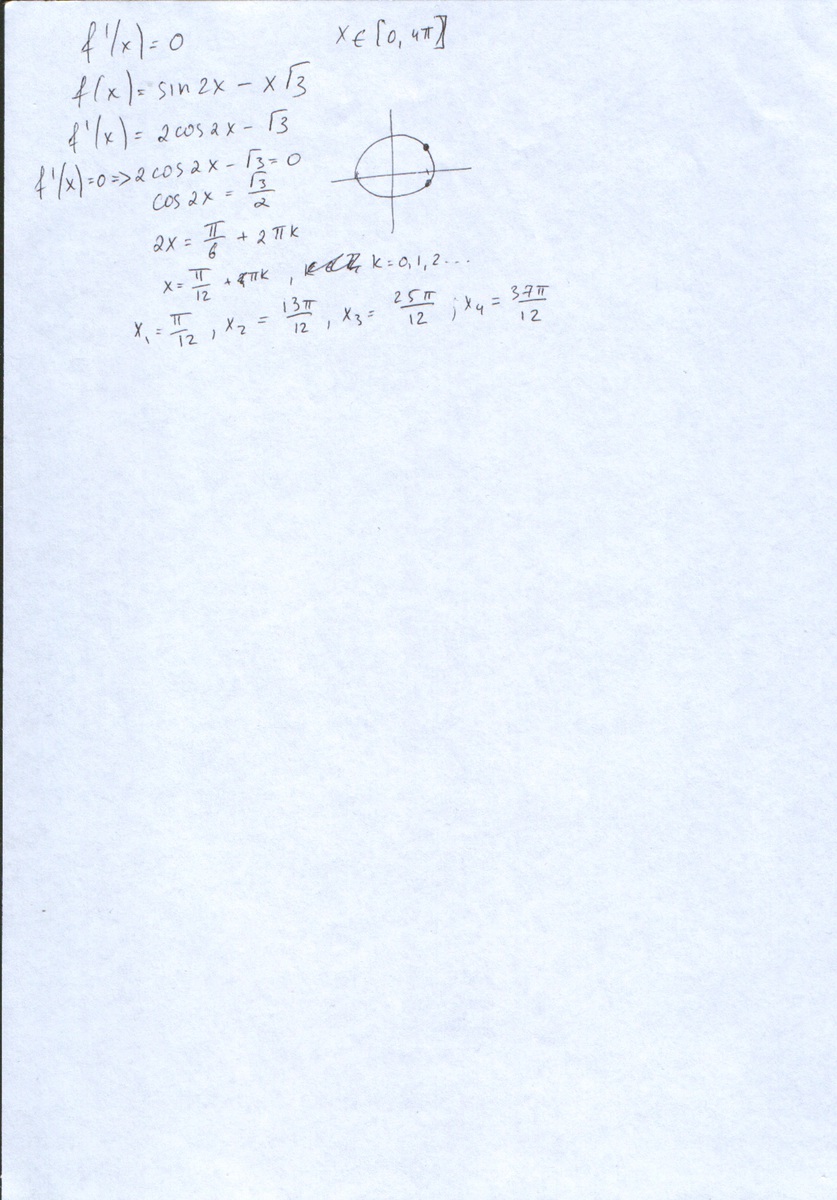 f'(x) = 0 x ∈ [0, 4π]
f(x) = sin 2x − x√3
f'(x) = 2cos 2x − √3
f'(x) = 0 => 2cos 2x − √3 = 0
cos 2x = √3/2
2x = π/6 + 2πk
x = π/12 + πk , k = 0, 1, 2 ...
x₁ = π/12 , x₂ = 13π/12 , x₃ = 25π/12 ; x₄ = 37π/12